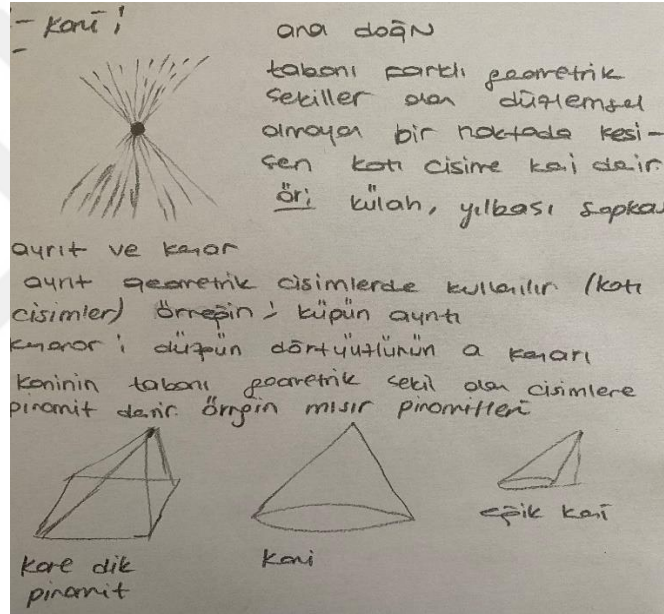 - Koni :
ana doğru
tabanı farklı geometrik
şekiller olan düzlemsel
olmayan bir noktada kesi-
şen katı cisime koni denir.
ör: külah, yılbaşı şapkası
ayrıt ve kenar
ayrıt geometrik cisimlerde kullanılır (katı
cisimler) örneğin: küpün ayrıtı
kenar: düzgün dörtyüzlünün a kenarı
koninin tabanı geometrik şekil olan cisimlere
piramit denir. örneğin mısır piramitleri
kare dik
piramit
Koni
eğik koni